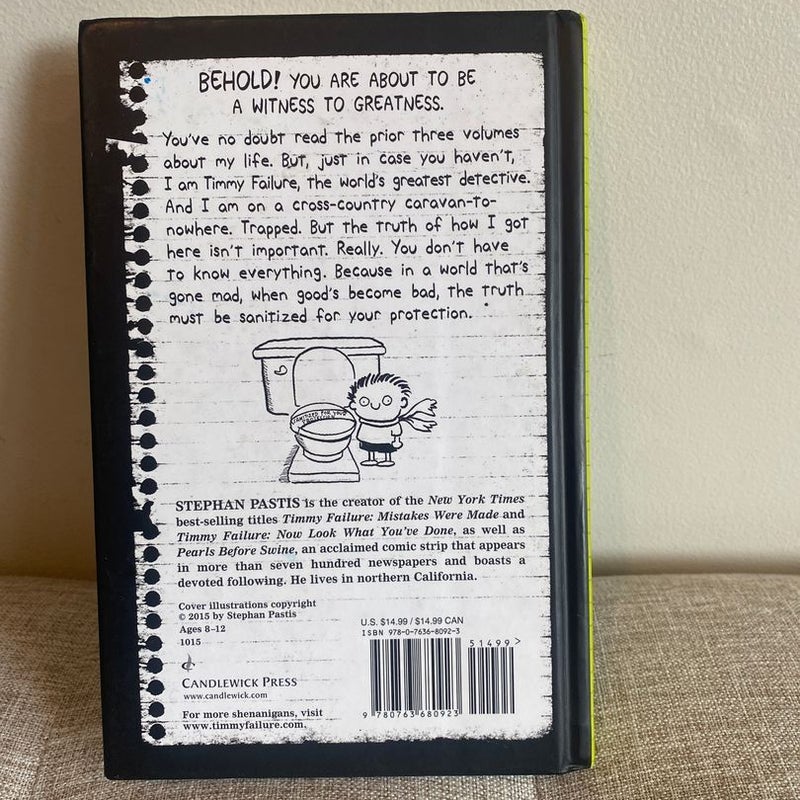 BEHOLD! YOU ARE ABOUT TO BE
A WITNESS TO GREATNESS.
You've no doubt read the prior three volumes
about my life. But, just in case you haven't,
I am Timmy Failure, the world's greatest detective.
And I am on a cross-country caravan-to-
nowhere. Trapped. But the truth of how I got
here isn't important. Really. You don't have
to know everything. Because in a world that's
gone mad, when good's become bad, the truth
must be sanitized for your protection.
SANITIZED FOR YOUR
PROTECTION
STEPHAN PASTIS is the creator of the New York Times
best-selling titles Timmy Failure: Mistakes Were Made and
Timmy Failure: Now Look What You've Done, as well as
Pearls Before Swine, an acclaimed comic strip that appears
in more than seven hundred newspapers and boasts a
devoted following. He lives in northern California.
Cover illustrations copyright
© 2015 by Stephan Pastis
Ages 8–12
1015
CANDLEWICK PRESS
www.candlewick.com
For more shenanigans, visit
www.timmyfailure.com.
U.S. $14.99 / $14.99 CAN
ISBN 978-0-7636-8092-3
51499>
9 780763 680923